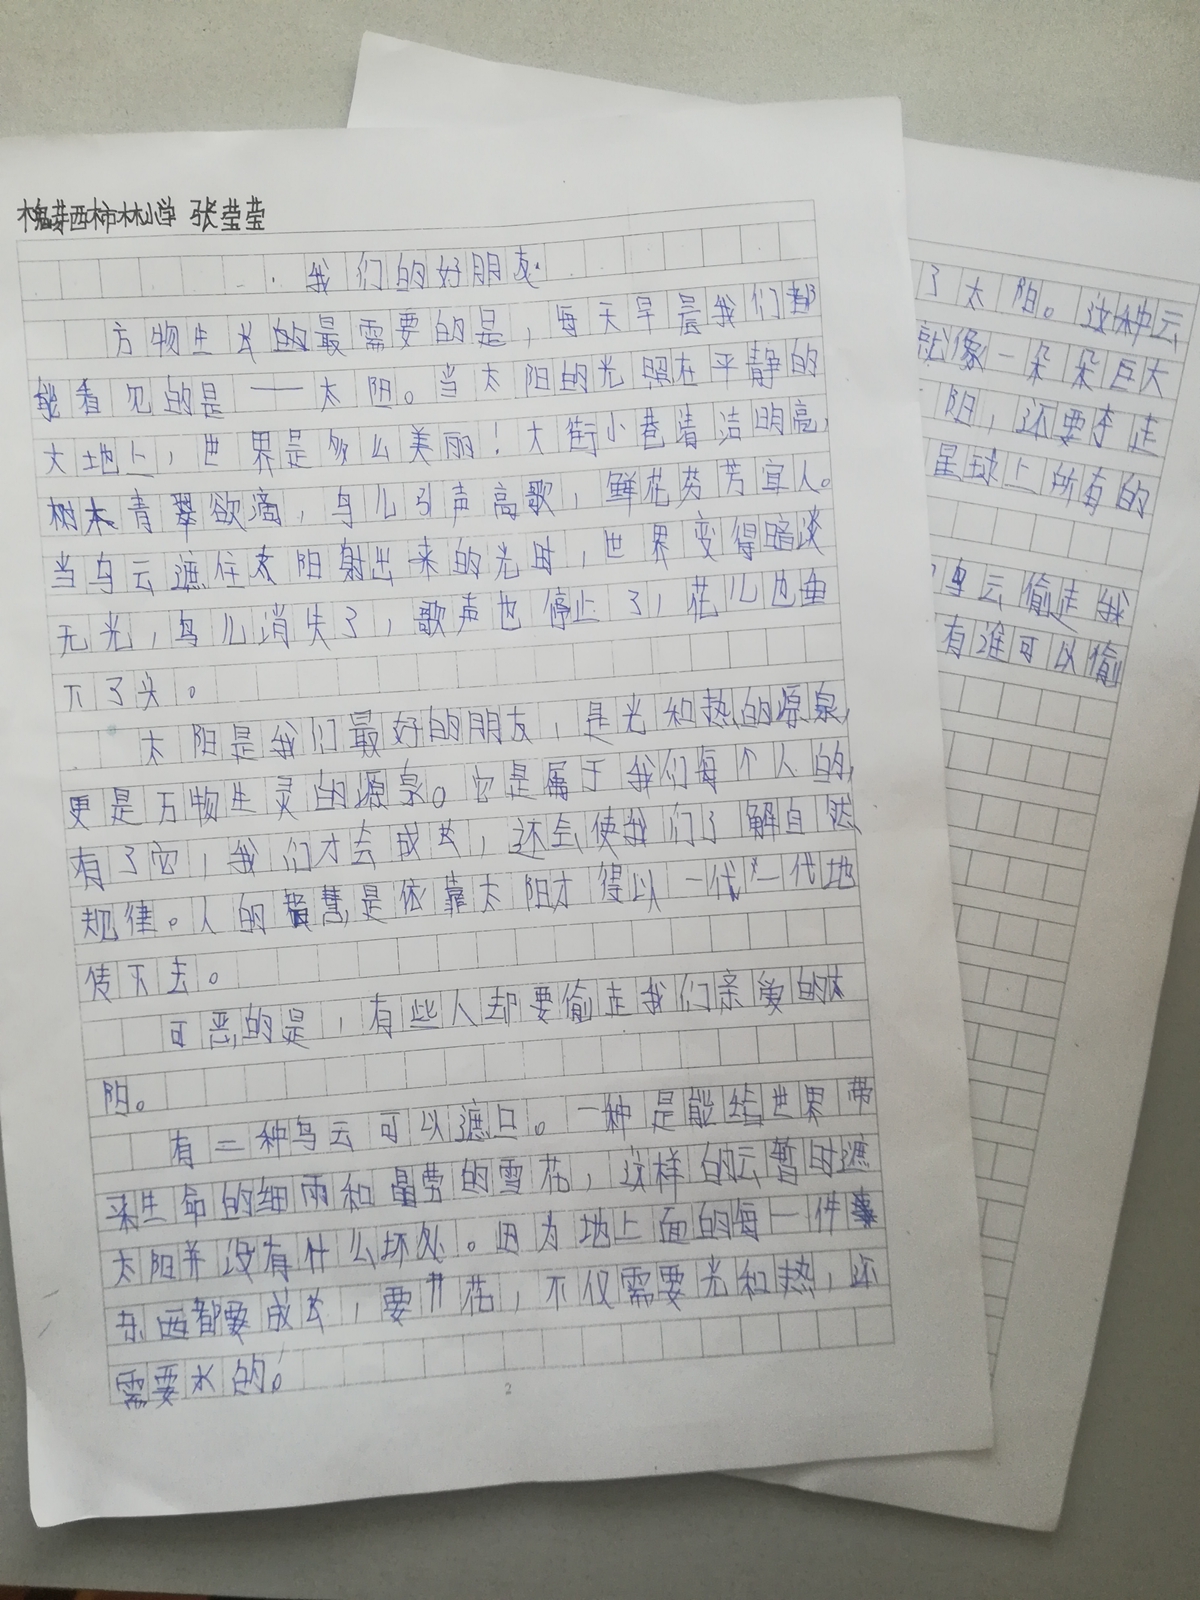 槐芽西柿林小学 张莹莹
我们的好朋友
万物生长的最需要的是，每天早晨我们都
能看见的是——太阳。当太阳的光照在平静的
大地上，世界是多么美丽！大街小巷清洁明亮，
树木青翠欲滴，鸟儿引声高歌，鲜花芬芳宜人。
当乌云遮住太阳射出来的光时，世界变得暗淡
无光，鸟儿消失了，歌声也停止了，花儿也垂
下了头。
太阳是我们最好的朋友，是光和热的源泉，
更是万物生灵的源泉。它是属于我们每个人的，
有了它，我们才会成长，还会使我们了解自然
规律。人的智慧是依靠太阳才得以一代一代地
传下去。
可恶的是，有些人却要偷走我们亲爱的太
阳。
有二种乌云可以遮日。一种是能给世界带
来生命的细雨和晶莹的雪花，这样的云暂时遮
太阳并没有什么坏处。因为地上面的每一件
东西都要成长，要开花，不仅需要光和热，还
需要水的！
2
了太阳。这种云
就像一朵朵巨大
阳，还要李走
星球上所有的
乌云偷走我
有谁可以偷